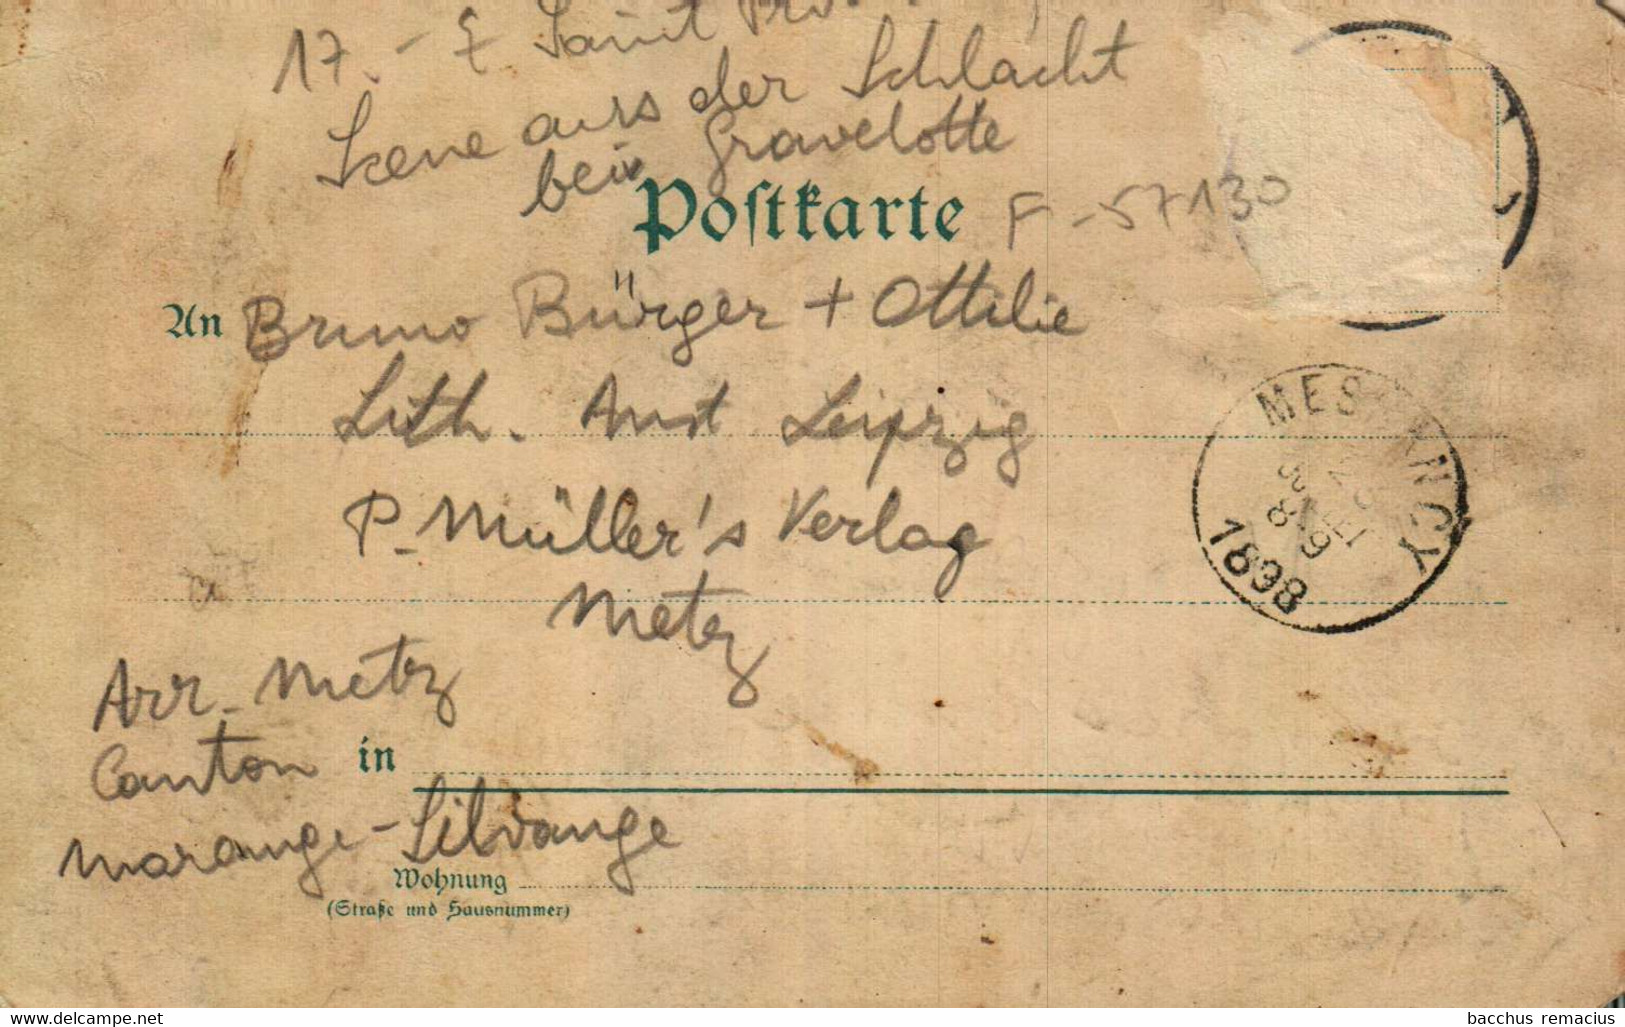 17. - E Saint Pro
Scene aus der Schlacht
bei Gravelotte
Postkarte
F-57130
An Bruno Bürger + Ottilie
Lith. Anst Leipzig
P. Müller's Verlag
Metz
MESSANCY
1898
Arr. Metz
Canton
in
Marange-Silvange
Wohnung
(Straße und Hausnummer)
www.delcampe.net
bacchus remacius